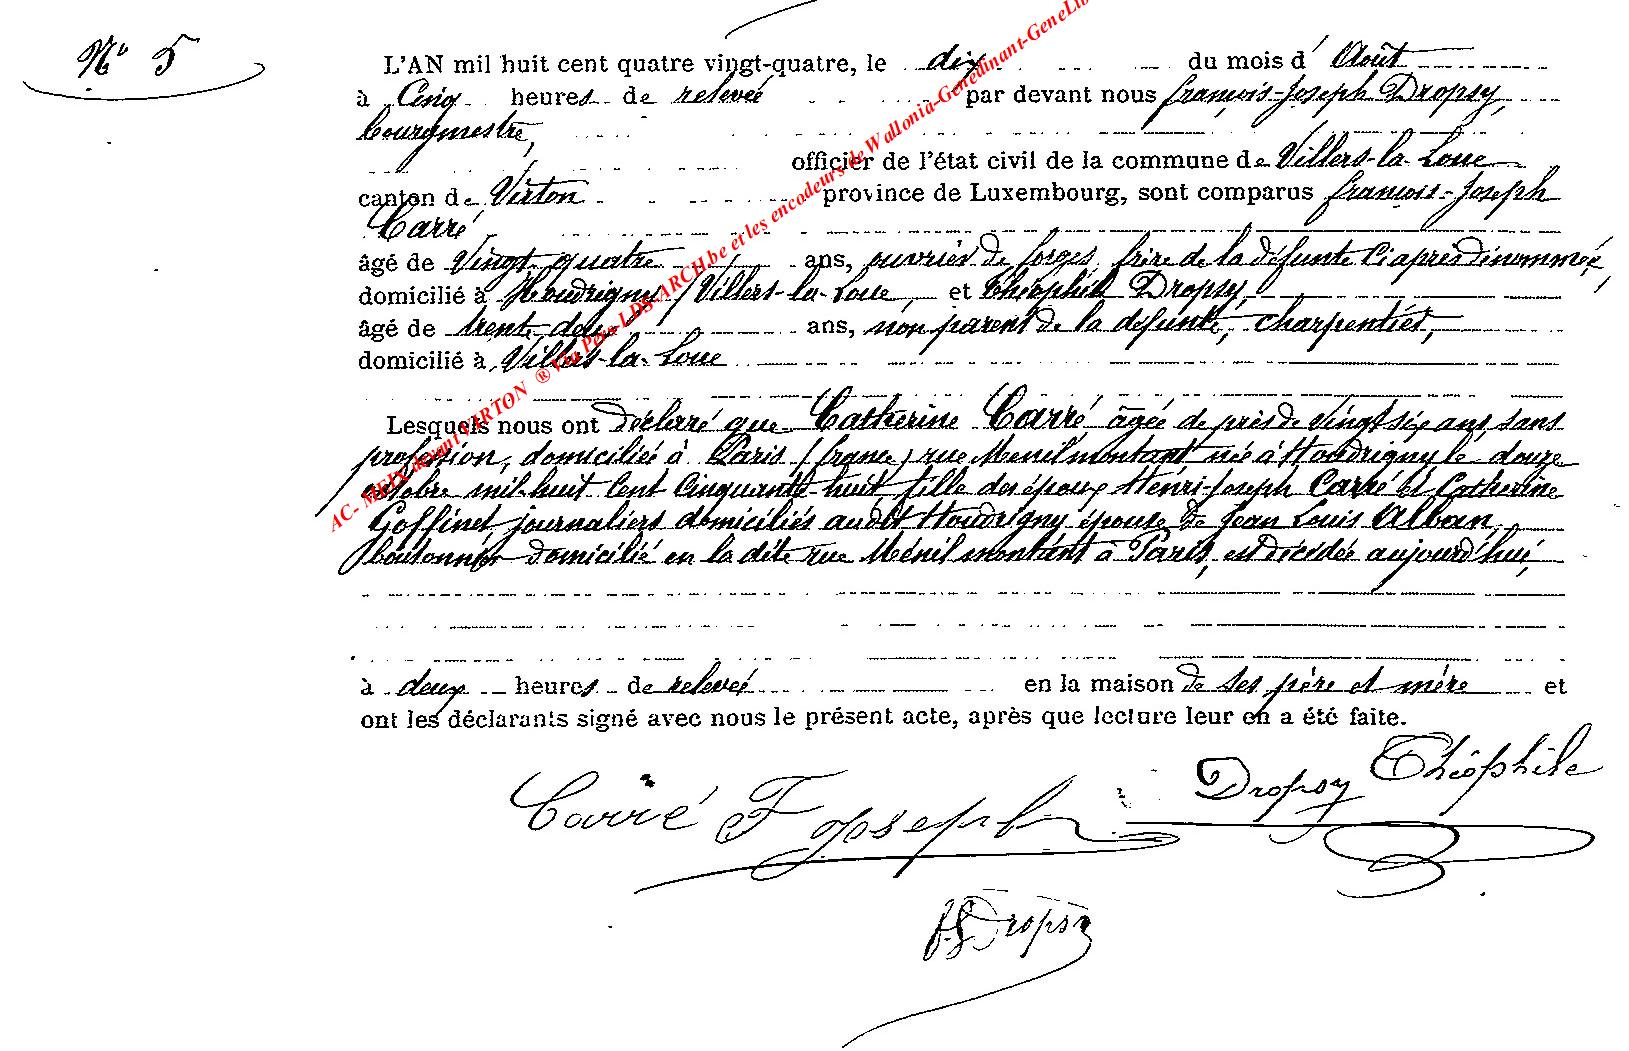 N° 5
L'AN mil huit cent quatre vingt-quatre, le dix du mois d'Août
à Cinq heures de relevée par devant nous françois-Joseph Dropsy,
bourgmestre,
officier de l'état civil de la commune de Villers-la-Loue
canton de Virton province de Luxembourg, sont comparus françois-Joseph
Carré
âgé de Vingt-quatre ans, ouvrier de forges, frère de la défunte Ci après dénommée,
domicilié à Houdrigny / Villers-la-Loue, et théophile Dropsy,
âgé de trente-deux ans, non parent de la défunte, charpentier,
domicilié à Villers-la-Loue
Lesquels nous ont déclaré que Catherine Carré âgée de près de vingt six ans, sans
profession, domiciliée à Paris (france) rue Menilmontant née à Houdrigny le douze
octobre mil-huit Cent Cinquante-huit, fille des époux Henri-Joseph Carré et Catherine
Goffinet, journaliers domiciliés audit Houdrigny épouse de Jean Louis Alban,
boutonnier domicilié en la dite rue Ménilmontant à Paris, est décédée aujourd'hui,
à deux heures de relevée en la maison de ses père et mère et
ont les déclarants signé avec nous le présent acte, après que lecture leur en a été faite.
Carré F Joseph
Dropsy Théophile
f. J Dropsy
AC- MEIX devant VIRTON ® Via Pers-LDS-ARCH.be et les encodeurs de Wallonia-Genedinant-GeneLib